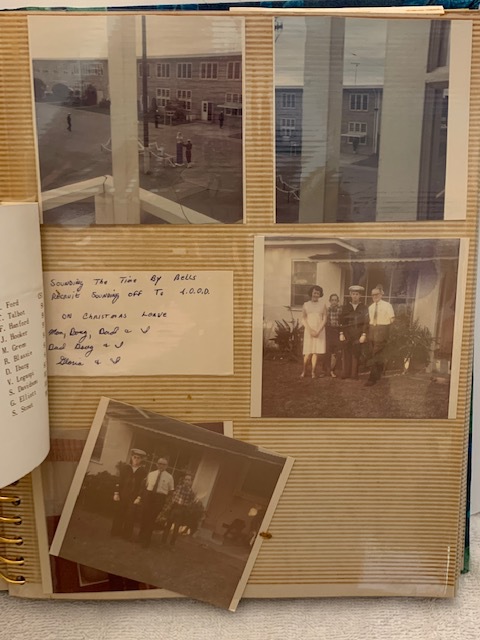 Sounding The Time By Bells
Recruit Sounding off To J.O.O.D.
ON CHRISTMAS LEAVE
Mom, Doug, Dad & I
Dad Doug & I
Gloria & I
Ford
Talbot
F. Hanford
J. Hooker
M. Green
R. Blassie
D. Ibarg
V. Legunga
S. Davidson
G. Elliott
S. Stout